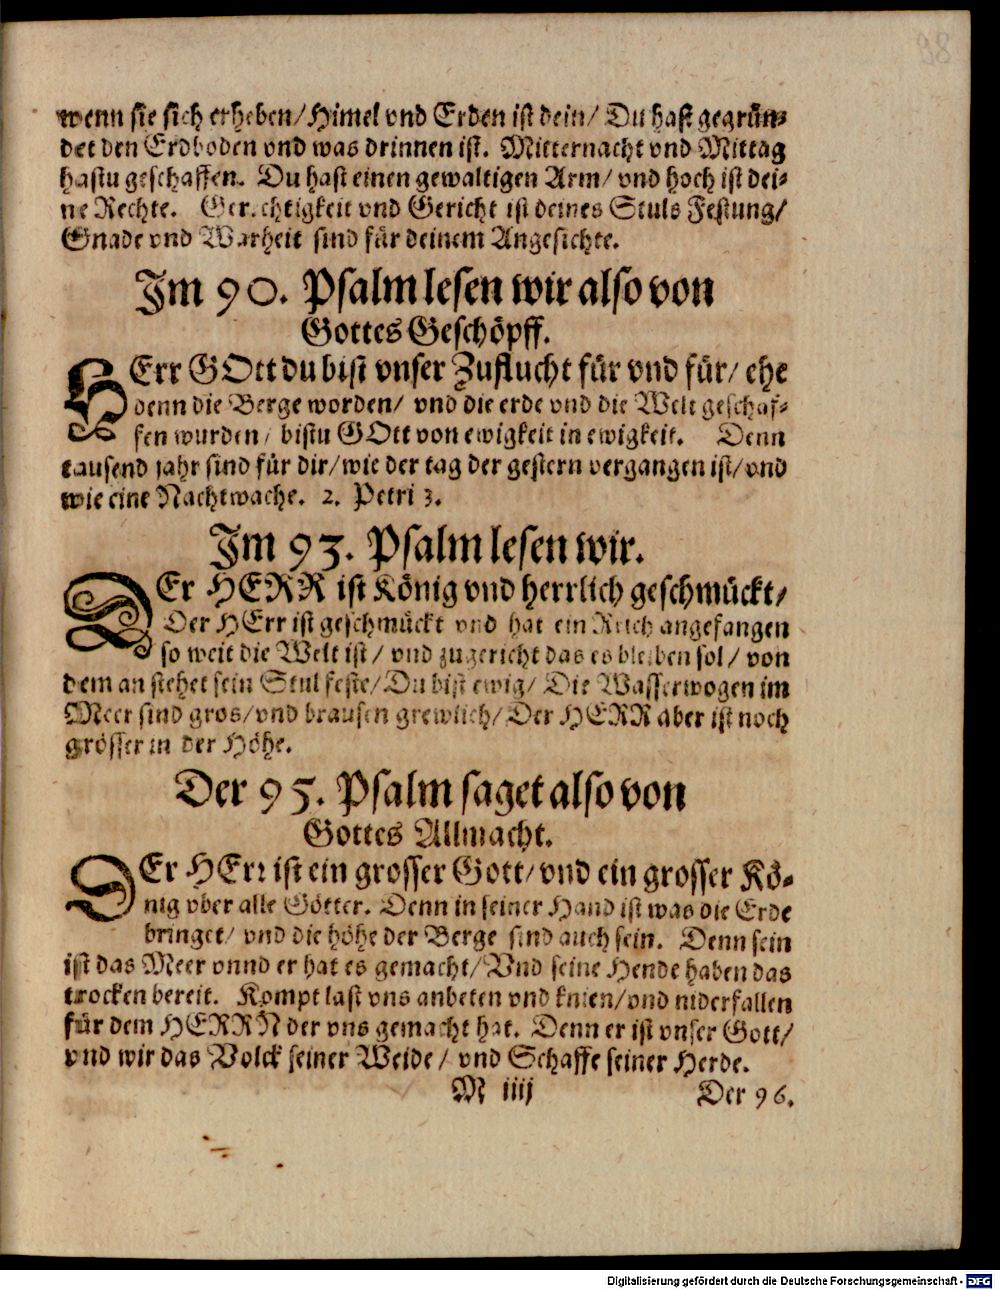 98
wenn sie sich erheben/Himel vnd Erden ist dein/ Du hast gegrün-
det den Erdboden vnd was drinnen ist. Mitternacht vnd Mittag
hastu geschaffen. Du hast einen gewaltigen Arm/ vnd hoch ist dei-
ne Rechte. Gerechtigkeit vnd Gericht ist deines Stuls Festung/
Gnade vnd Warheit sind für deinem Angesichte.
Im 90. Psalm lesen wir also von
Gottes Geschöpff.
HErr GOtt du bist vnser Zuflucht für vnd für/ ehe
denn die Berge worden/ vnd die erde vnd die Welt geschaf-
fen wurden/ bistu GOtt von ewigkeit in ewigkeit. Denn
tausend jahr sind für dir/wie der tag der gestern vergangen ist/vnd
wie eine Nachtwache. 2. Petri 3.
Im 93. Psalm lesen wir.
DEr HERR ist König vnd herrlich geschmückt/
Der HErr ist geschmückt vnd hat ein Reich angefangen
so weit die Welt ist/ vnd zugericht das es bleiben sol/ von
dem an stehet sein Stul feste/Du bist ewig/ Die Wasserwogen im
Meer sind gros/vnd brausen grewlich/Der HERR aber ist noch
grösser in der Höhe.
Der 95. Psalm saget also von
Gottes Allmacht.
DEr HErr ist ein grosser Gott/vnd ein grosser Kö-
nig vber alle Götter. Denn in seiner Hand ist was die Erde
bringet/ vnd die höhe der Berge sind auch sein. Denn sein
ist das Meer vnnd er hat es gemacht/Vnd seine Hende haben das
trocken bereit. Kompt last vns anbeten vnd knien/vnd niderfallen
für dem HERRN der vns gemacht hat. Denn er ist vnser Gott/
vnd wir das Volck seiner Weide/ vnd Schaffe seiner Herde.
M iiij Der 96.
Digitalisierung gefördert durch die Deutsche Forschungsgemeinschaft - DFG